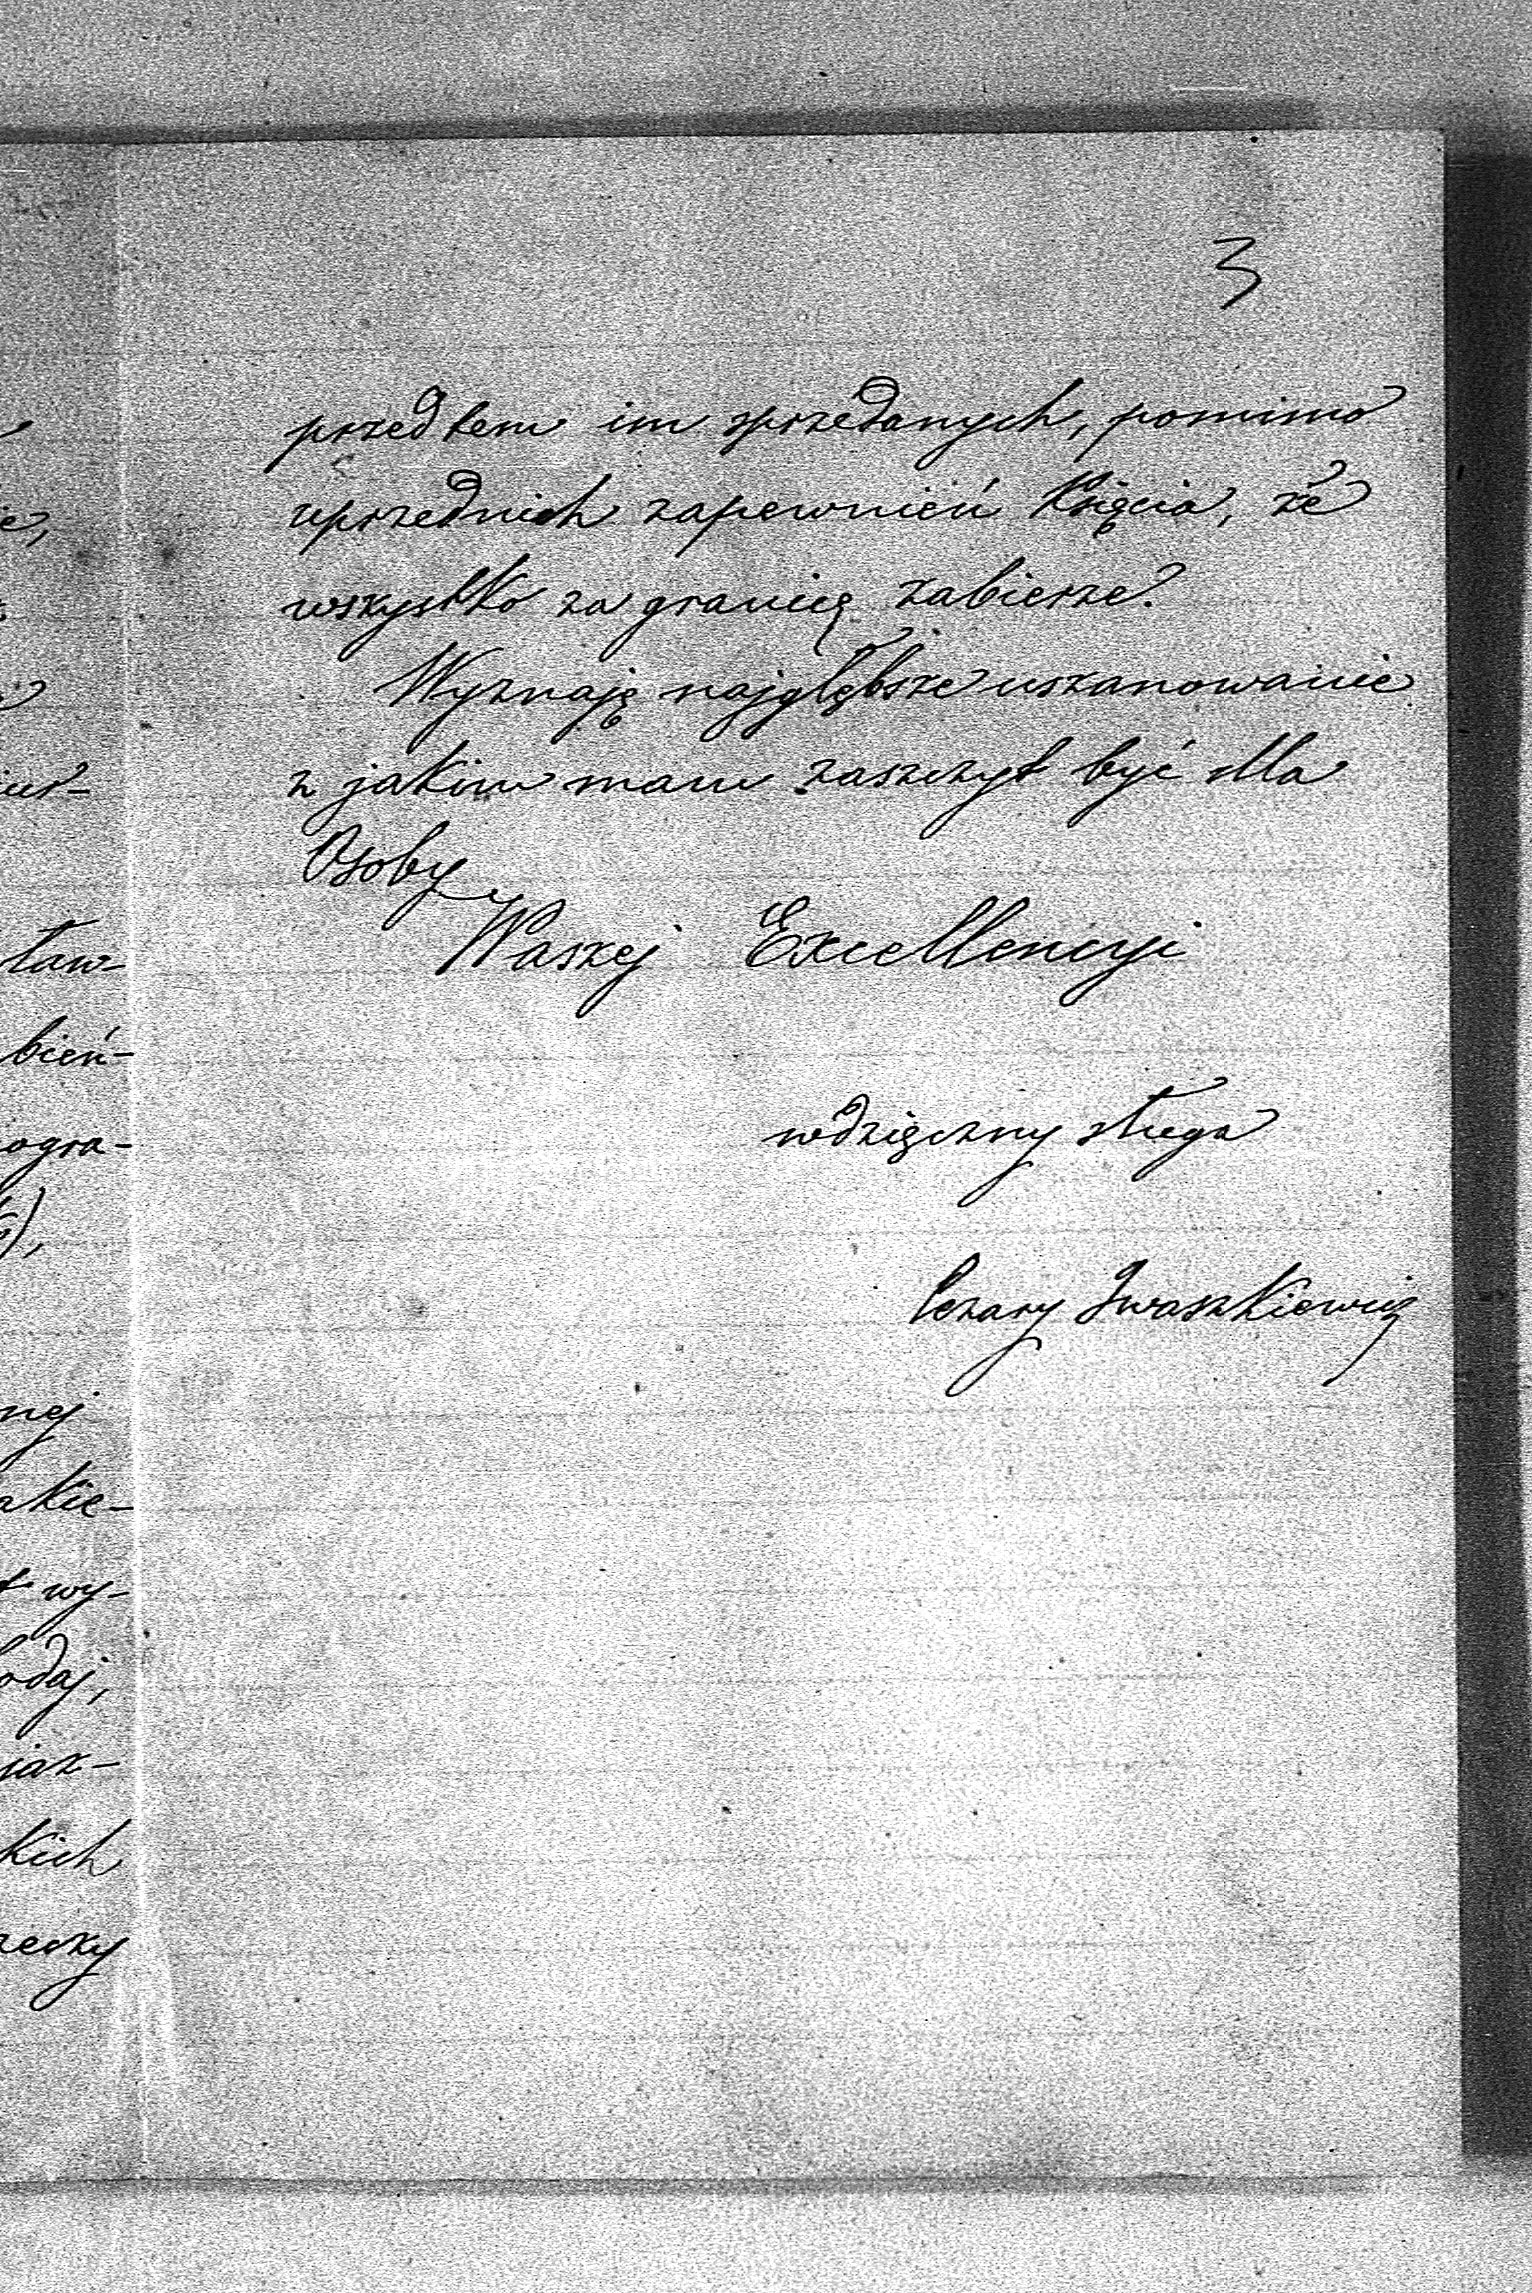 3
przedtem im sprzedanych, pomimo
uprzednich zapewnień Księcia, że
wszystko za granicę zabierze.
Wyznaję najgłębsze uszanowanie
z jakiem mam zaszczyt być dla
Osoby
Waszej Excellencyi
wdzięczny sługa
Cezary Iwaszkiewicz
taw-
bień-
ogra-
nej
akie-
wy-
odaj,
jaz-
kich
rzeczy